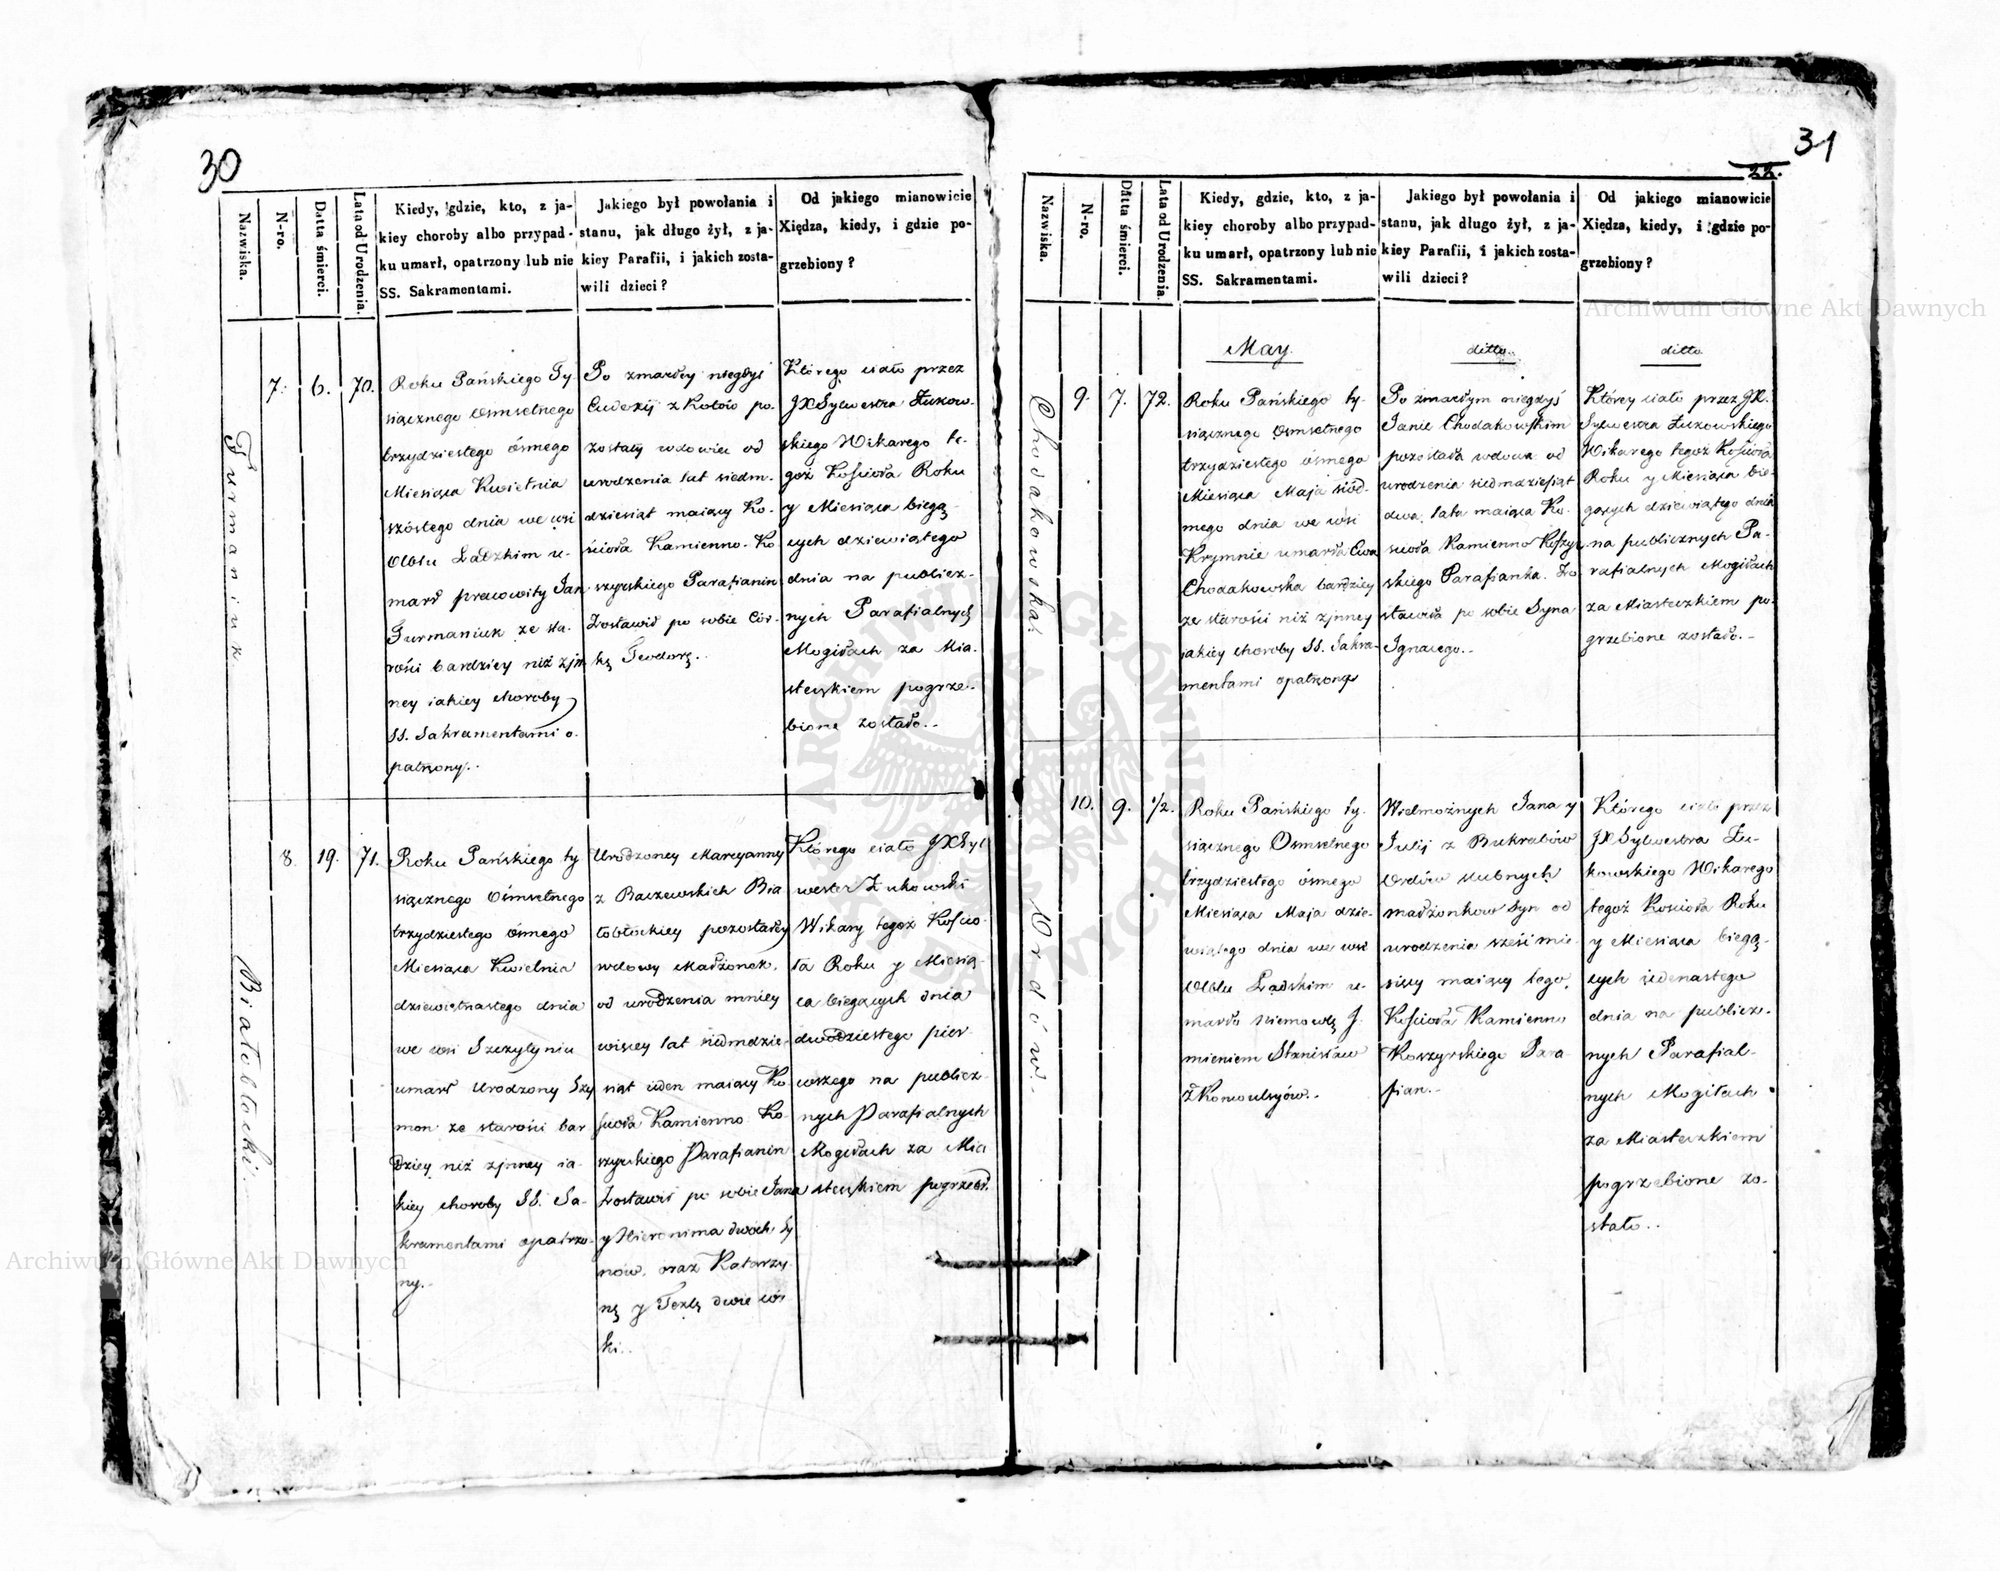 30
Nazwiska.
N-ro.
Datta śmierci.
Lata od Urodzenia.
Kiedy, gdzie, kto, z ja-
kiey choroby albo przypad-
ku umarł, opatrzony lub nie
SS. Sakramentami.
Jakiego był powołania i
stanu, jak długo żył, z ja-
kiey Parafii, i jakich zosta-
wili dzieci?
Od jakiego mianowicie
Xiędza, kiedy, i gdzie po-
grzebiony?
Furmaniuk.
7.
6.
70.
Roku Pańskiego Ty-
siącznego Osmsetnego
trzydziestego ósmego
Miesiąca Kwietnia
szóstego dnia we wsi
Olblu Ladzkim u-
marł pracowity Jan
Furmaniuk ze sta-
rości bardziey niż zjn-
ney iakiey choroby
SS. Sakramentami o-
patrzony..
Po zmarłey niegdyś
Eudexij z Kotów po-
zostały wdowiec od
urodzenia lat siedm-
dziesiąt maiący Ko-
ścioła Kamienno-Ko
szyrskiego Parafianin
Zostawił po sobie Cór-
kę Teodorę..
Którego ciało przez
JX Sylwestra Żukow-
skiego Wikarego te-
goż Kościoła Roku
y Miesiąca biegą-
cych dziewiątego
dnia na publicz-
nych Parafialnych
Mogiłach za Mia-
steczkiem pogrze-
bione zostało..
Białobłocki.
8.
19.
71.
Roku Pańskiego ty
siącznego Ośmsetnego
trzydziestego ósmego
Miesiąca Kwietnia
dziewiętnastego dnia
we wsi Szczytyniu
umarł Urodzony Szy
mon ze starości bar
dziey niż zjnney ia-
kiey choroby SS. Sa-
kramentami opatrzo-
ny.-
Urodzoney Maryanny
z Baczewskich Bia
łobłockiey pozostałey
wdowy Małżonek,
od urodzenia mniey
więcey lat siedmdzie-
siąt ieden maiący Ko
ścioła Kamienno Ko-
szyrskiego Parafianin
Zostawił po sobie Jana
y Hieronima dwóch Sy
nów, oraz Katarzy-
nę y Teklę dwie cór-
ki..
Którego ciało JX Syl
wester Żukowski
Wikary tegoż Kościo-
ła Roku y Miesią-
ca biegących dnia
dwódziestego pier-
wszego na publicz-
nych Parafialnych
Mogiłach za Mia
steczkiem pogrzebł.
31
22.
Nazwiska.
N-ro.
Datta śmierci.
Lata od Urodzenia.
Kiedy, gdzie, kto, z ja-
kiey choroby albo przypad-
ku umarł, opatrzony lub nie
SS. Sakramentami.
Jakiego był powołania i
stanu, jak długo żył, z ja-
kiey Parafii, i jakich zosta-
wili dzieci?
Od jakiego mianowicie
Xiędza, kiedy, i gdzie po-
grzebiony?
May.
ditto.
ditto.
Chodakowska.
9.
7.
72.
Roku Pańskiego ty-
siącznego Osmsetnego
trzydziestego ósmego
Miesiąca Maja siód-
mego dnia we wsi
Krymnie umarła Ewa
Chodakowska bardziey
ze starości niż zjnney
jakiey choroby SS. Sakra-
mentami opatrzona
Po zmarłym niegdyś
Janie Chodakowskim
pozostała wdowa od
urodzenia siedmdziesiąt
dwa lata maiąca Ko-
ścioła Kamienno Koszyr
skiego Parafianka. Zo
stawiła po sobie Syna
Ignacego..
Którey ciało przez JX.
Sylwestra Żukowskiego
Wikarego tegoż Kościoła
Roku y Miesiąca bie-
gących dziewiątego dnia
na publicznych Pa-
rafialnych Mogiłach
za Miasteczkiem po-
grzebione zostało.-
Ordów.
10.
9.
1/2.
Roku Pańskiego ty-
siącznego Osmsetnego
trzydziestego ósmego
Miesiąca Maja dzie-
wiątego dnia we wsi
Olblu Lądskim u-
marło niemowlę J-
mieniem Stanisław
z Konwulsyów..
Wielmożnych Jana y
Julij z Bukrabów
Ordów slubnych
małżonkow Syn od
urodzenia sześć mie-
sięcy maiący tego,
Kościoła Kamienno
Koszyrskiego Para-
fian.-
Którego ciało przez
JX Sylwestra Żu-
kowskiego Wikarego
tegoż Kościoła Roku
y Miesiąca biegą-
cych jedenastego
dnia na publicz-
nych Parafial-
nych Mogiłach
za Miasteczkiem
pogrzebione zo-
stało..
Archiwum Główne Akt Dawnych
Archiwum Główne Akt Dawnych